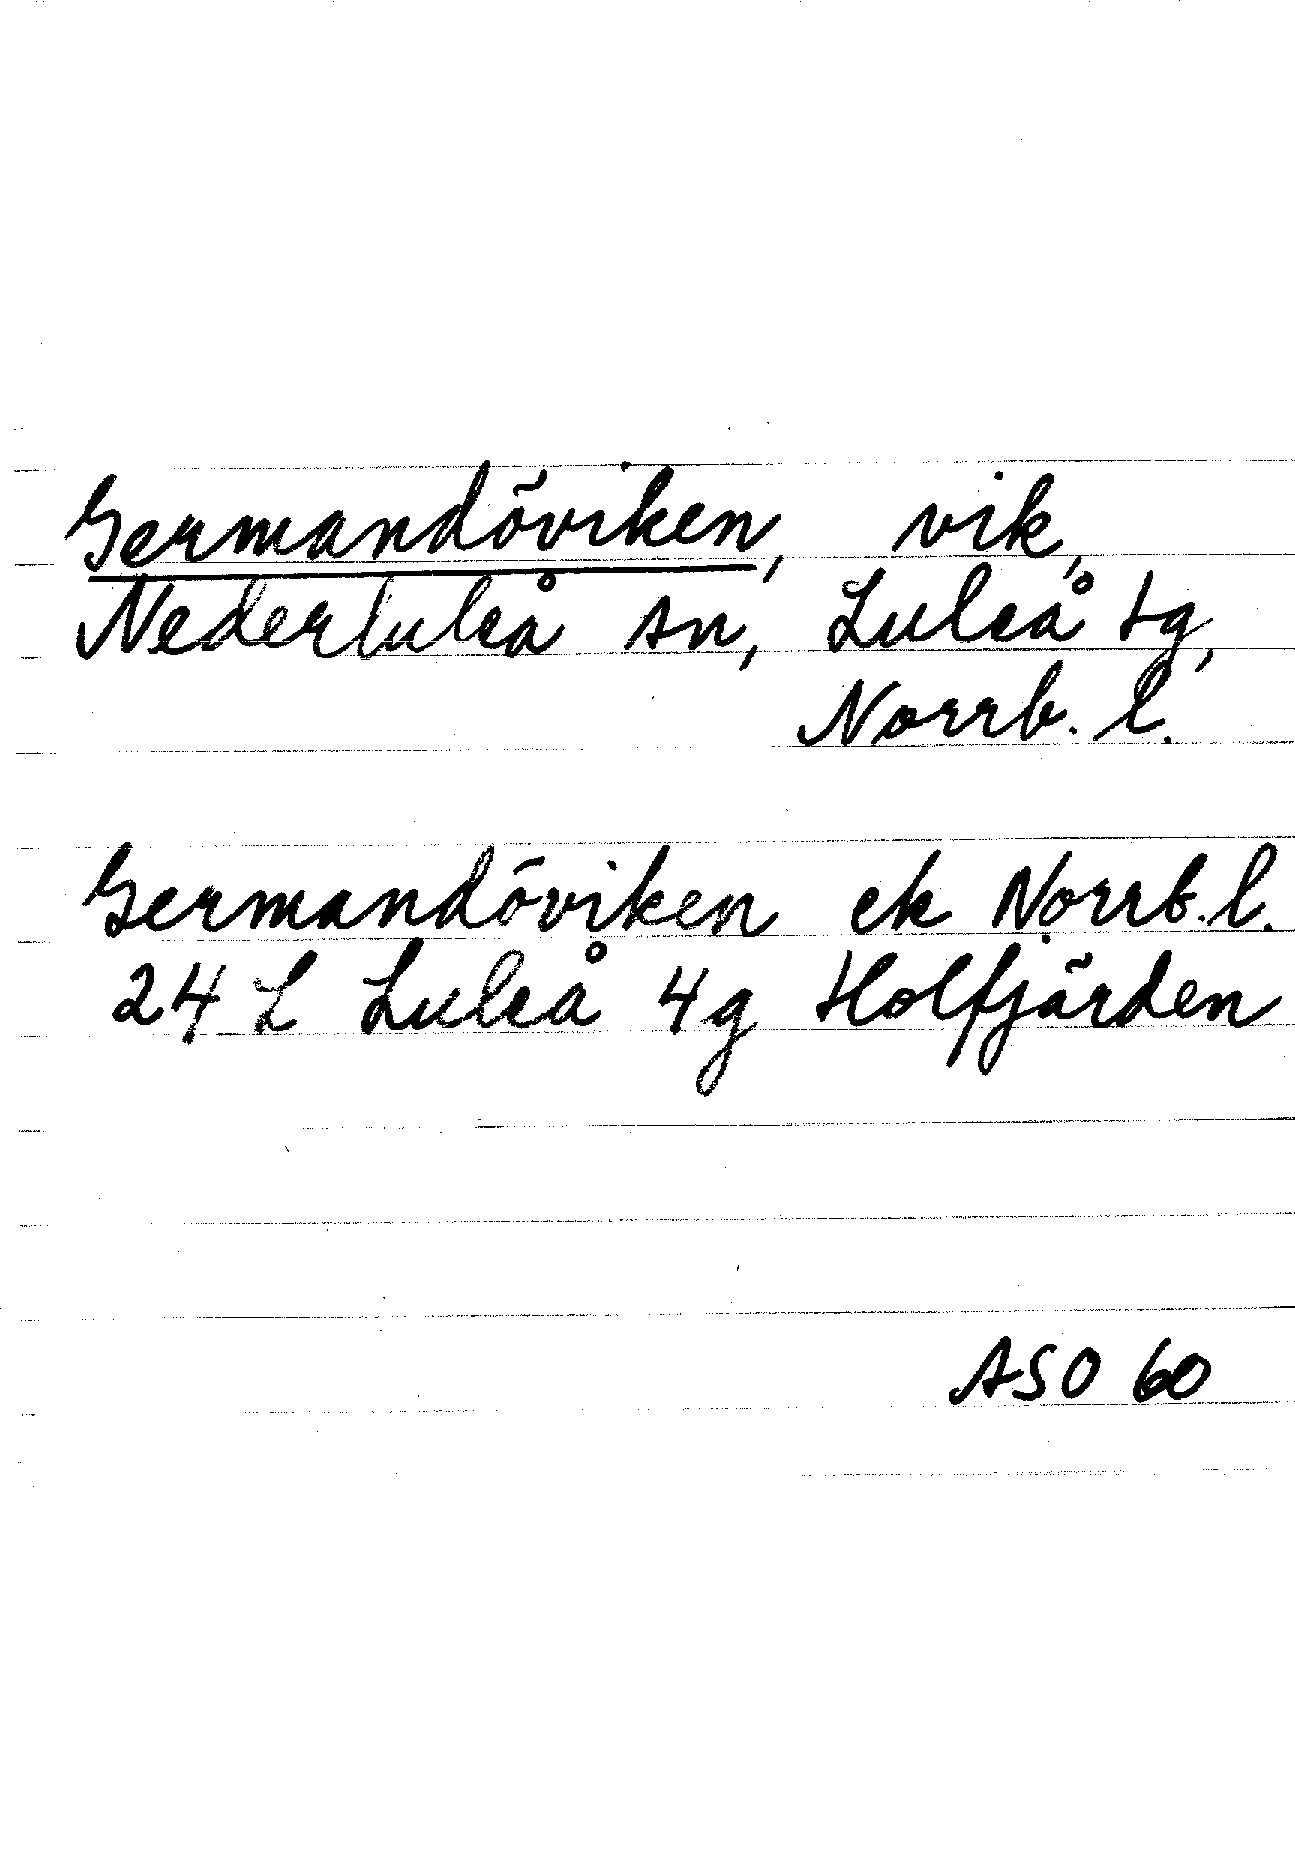 Germandöviken, vik,
Nederluleå sn, Luleå tg,
Norrb. l.
Germandöviken ek Norrb. l.
24 L Luleå 4g Holfjärden
ASO 60